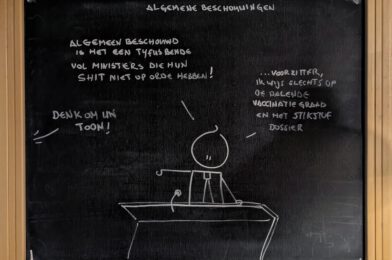 ALGEMENE BESCHOUWINGEN
ALGEMEEN BESCHOUWD
IS HET EEN TYFUSBENDE
VOL MINISTERS DIE HUN
SHIT NIET OP ORDE HEBBEN!
...VOORZITTER,
IK WIJS SLECHTS OP
DE DALENDE
VACCINATIE GRAAD
EN HET STIKSTOF
DOSSIER
DENK OM UW
TOON!